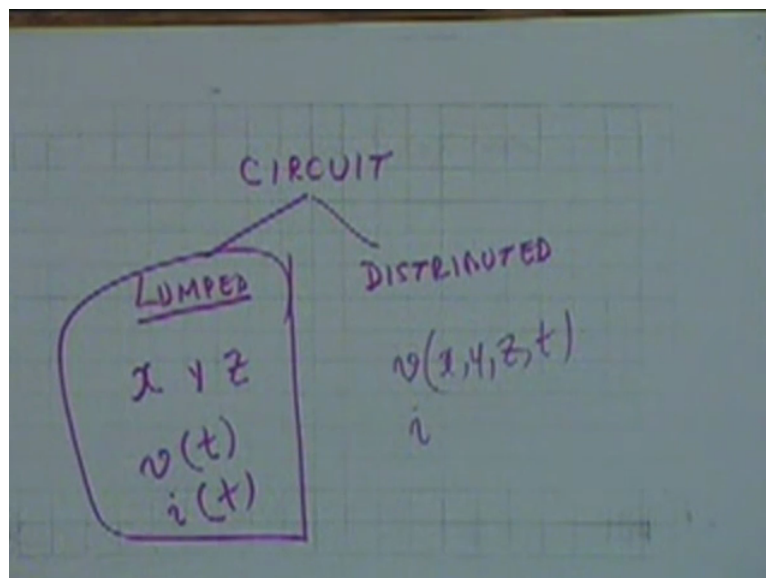 CIRCUIT
LUMPED
x y z
v(t)
i(t)
DISTRIBUTED
v(x,y,z,t)
i